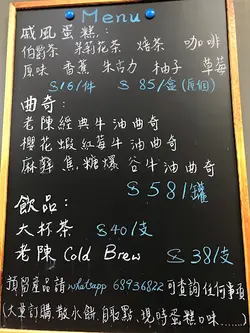 Menu
戚風蛋糕:
伯爵茶 茉莉花茶 焙茶 咖啡
原味 香蕉 朱古力 柚子 草莓
$16/件 $85/盒(6個)
曲奇:
老陳經典牛油曲奇
櫻花蝦紅莓牛油曲奇
麻辣焦糖爆谷牛油曲奇
$58/罐
飲品:
大杯茶 $40/支
老陳 Cold Brew $38/支
預留產品請whatsapp 68936822 可查詢任何事項
(大量訂購,散水餅,自取點,現時蛋糕口味......)